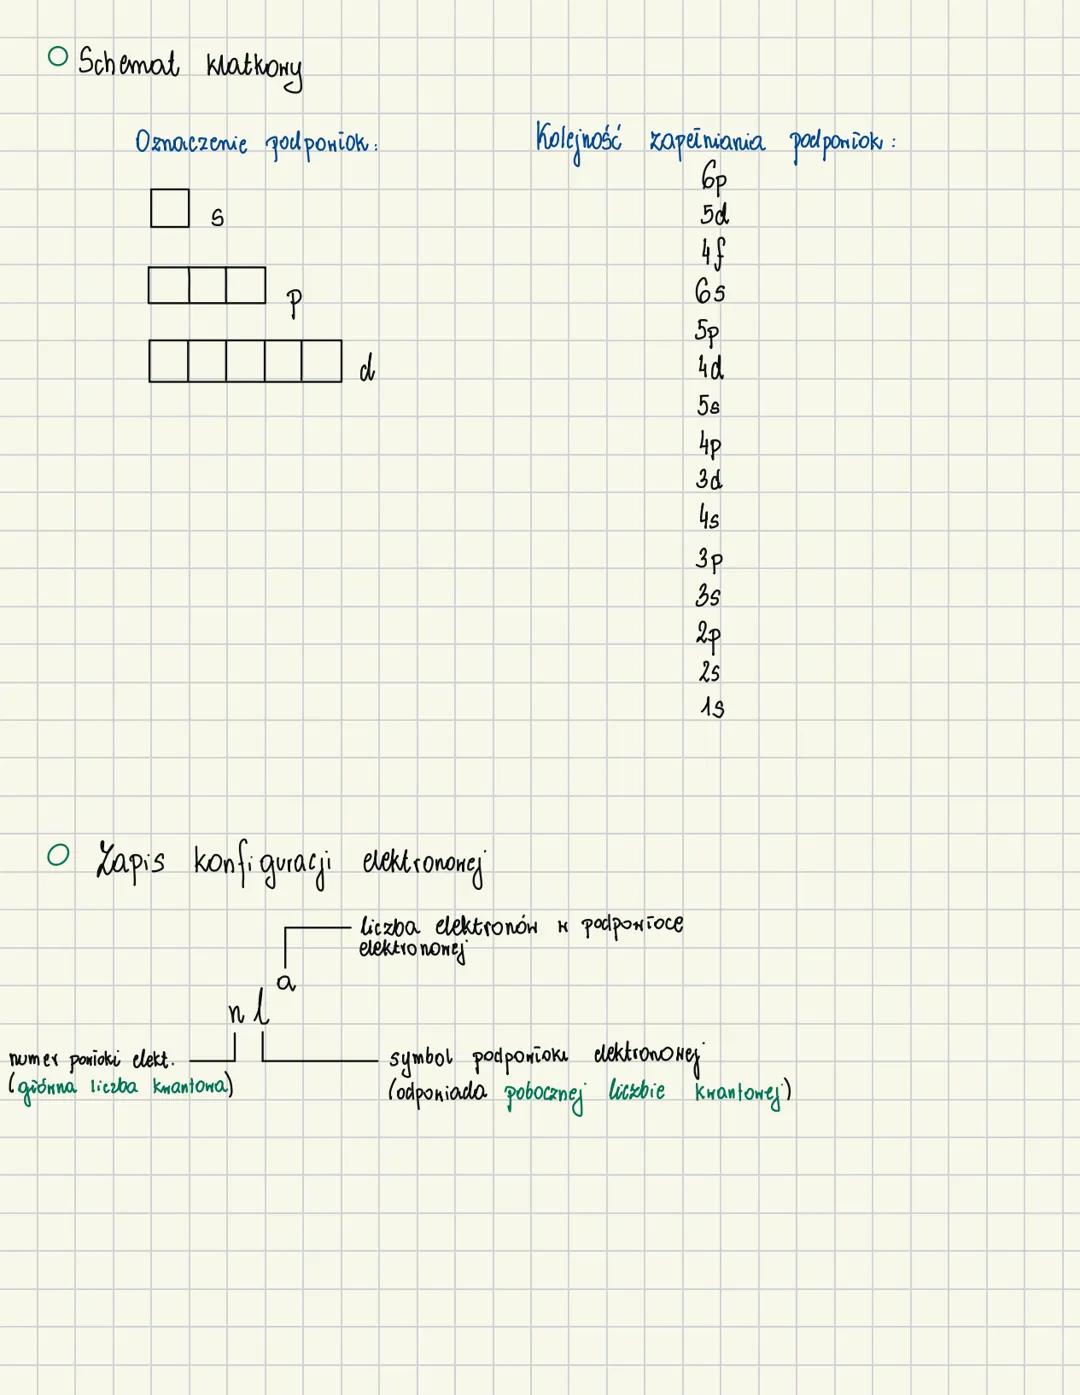 Schemat klatkowy
Oznaczenie podpowłok:
s
p
d
Kolejność zapełniania podpowłok:
6p
5d
4f
6s
5p
4d
5s
4p
3d
4s
3p
3s
2p
2s
1s
Zapis konfiguracji elektronowej
liczba elektronów w podpowłoce
elektronowej
a
n l
numer powłoki elekt.
(główna liczba kwantowa)
symbol podpowłoki elektronowej
(odpowiada pobocznej liczbie kwantowej)